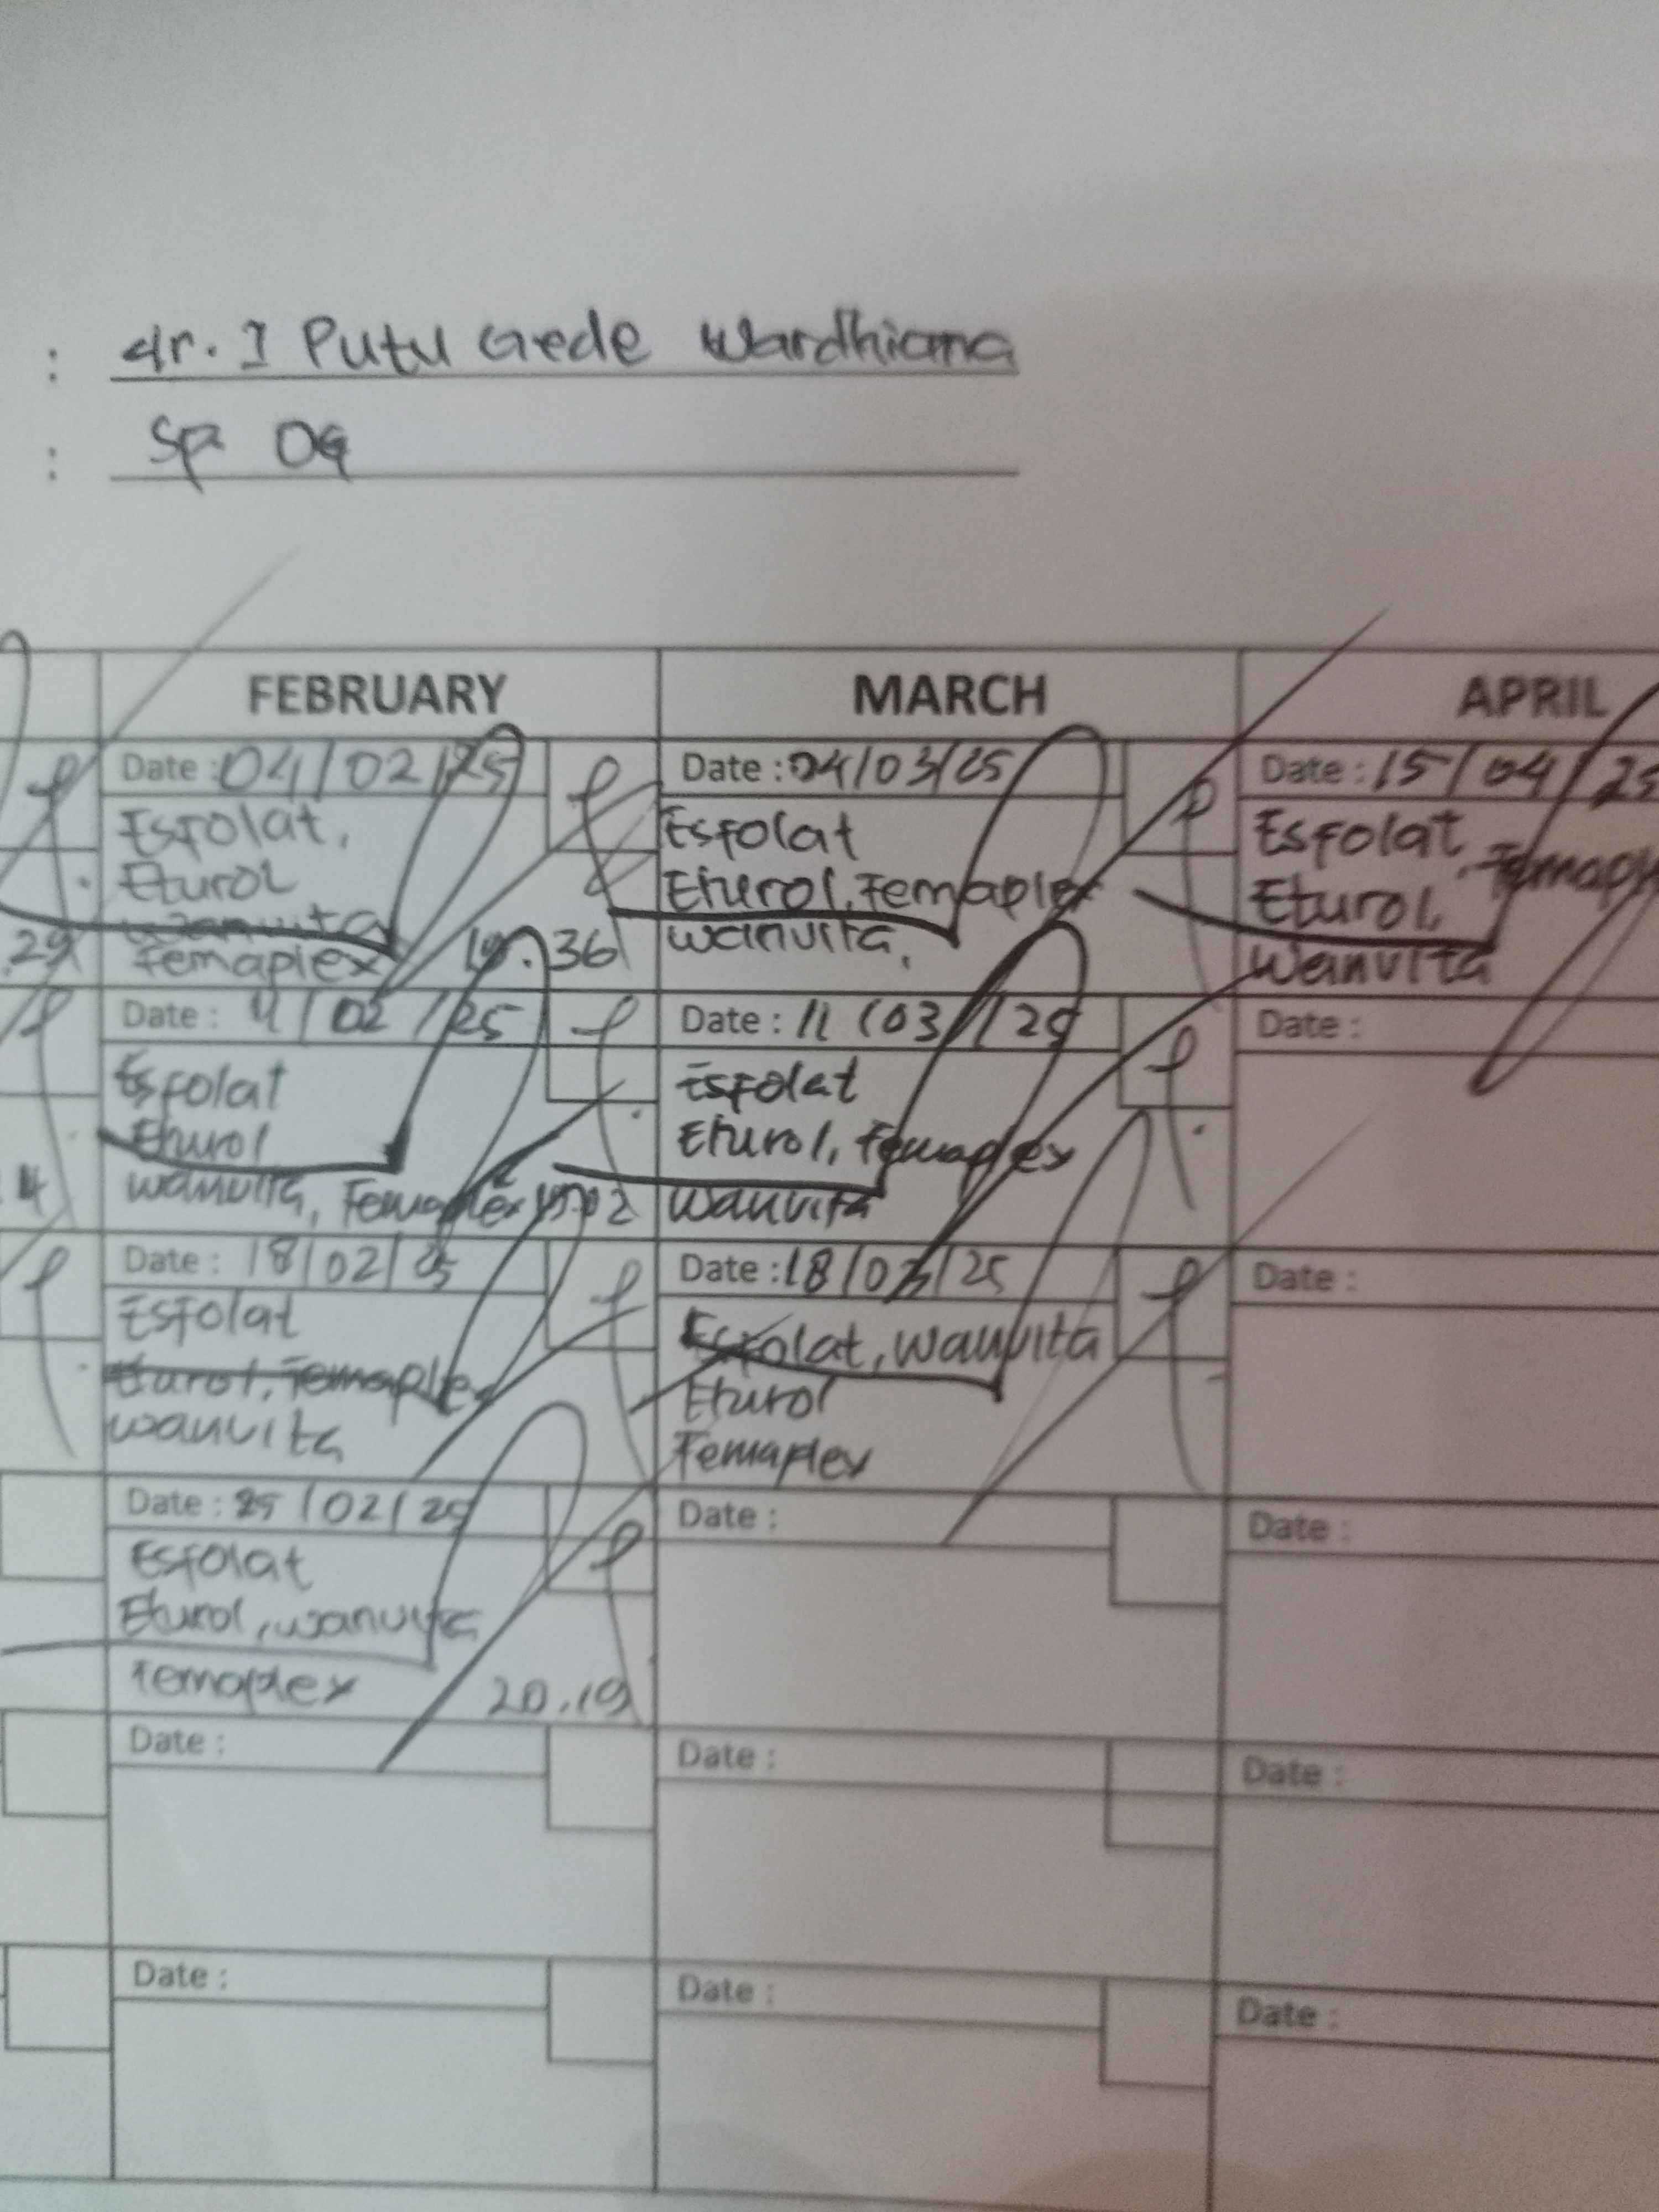 : dr. I Putu Gede Wardhiana
: Sp OG
FEBRUARY
Date : 04/02/25
Esfolat,
Eturol
Wanvita
Femaplex 19.36
Date : 11/02/25
Esfolat
Eturol
Wanvita, Femaplex
Date : 18/02/25
Esfolat
Eturol, Femaplex
Wanvita
Date : 25/02/25
Esfolat
Eturol, Wanvita
Femaplex 20.19
Date :
Date :
MARCH
Date : 04/03/25
Esfolat
Eturol, Femaplex
Wanvita,
Date : 11/03/25
Esfolat
Eturol, Femaplex
Wanvita
Date : 18/03/25
Esfolat, Wanvita
Eturol
Femaplex
Date :
Date :
Date :
APRIL
Date : 15/04/25
Esfolat, Femaple
Eturol,
Wanvita
Date :
Date :
Date :
Date :
Date :